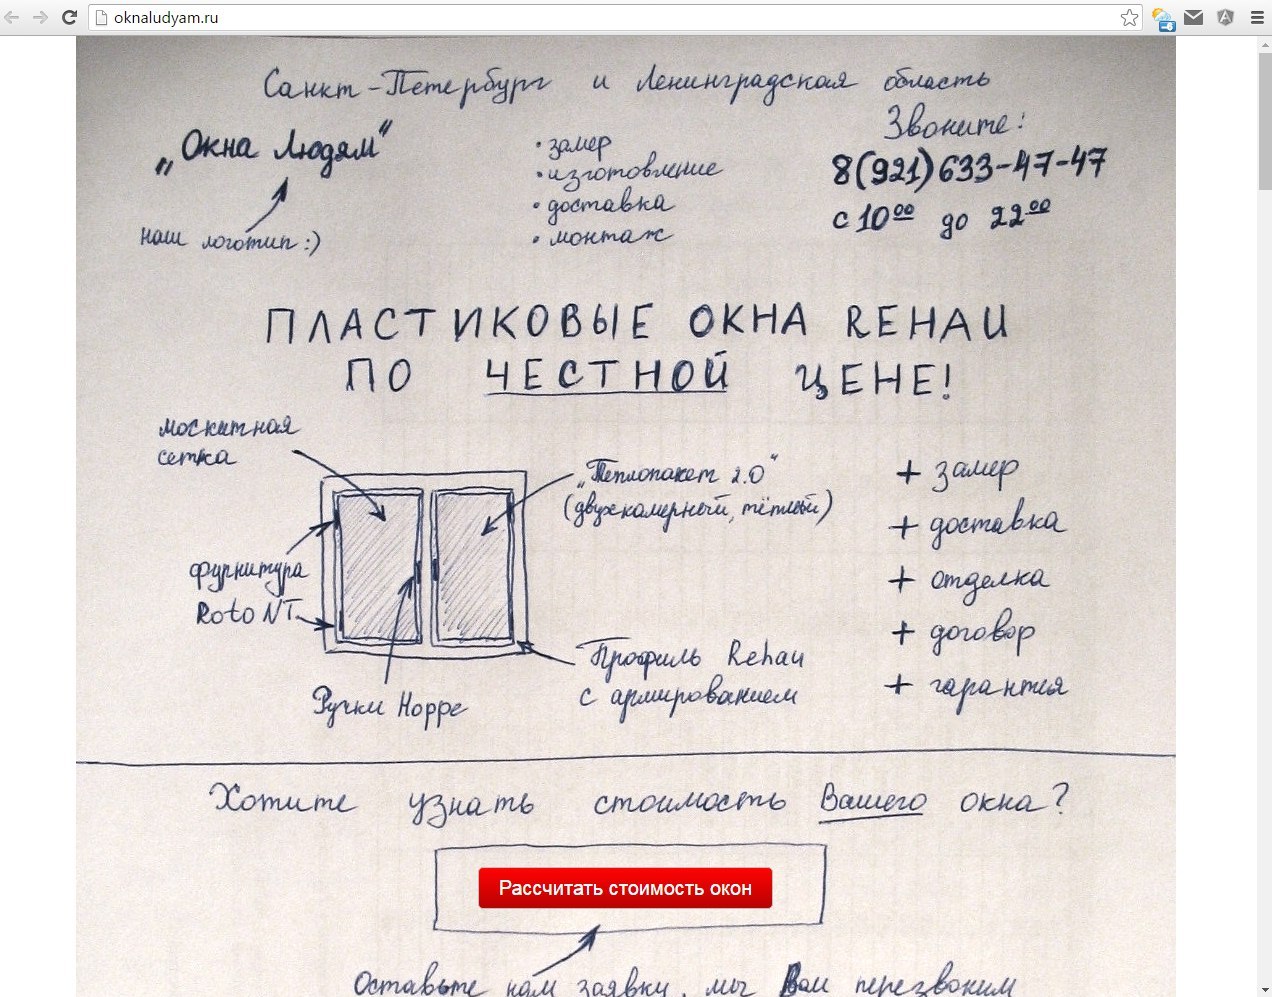 oknaludyam.ru
Санкт-Петербург и Ленинградская область
„Окна Людям“
наш логотип :)
• замер
• изготовление
• доставка
• монтаж
Звоните:
8(921)633-47-47
с 10⁰⁰ до 22⁰⁰
ПЛАСТИКОВЫЕ ОКНА REHAU
ПО ЧЕСТНОЙ ЦЕНЕ!
москитная
сетка
фурнитура
Roto NT
Ручки Hoppe
„Теплопакет 2.0“
(двухкамерный, тёплый)
Профиль Rehau
с армированием
+ замер
+ доставка
+ отделка
+ договор
+ гарантия
Хотите узнать стоимость Вашего окна?
Рассчитать стоимость окон
Оставьте нам заявку, мы Вам перезвоним